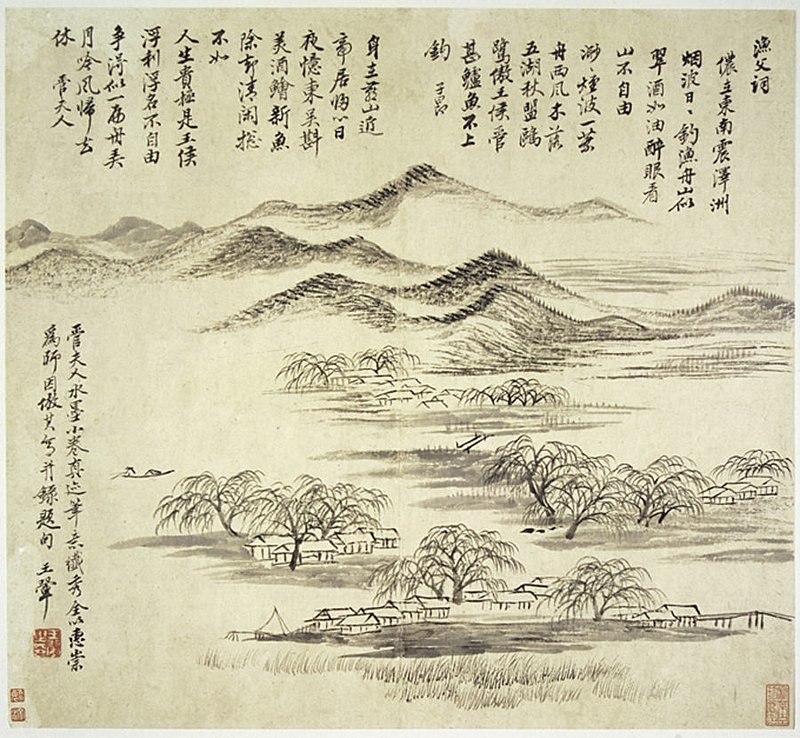 漁父詞
儂立東南震澤洲
烟波日〻釣漁舟山似
翠酒如油醉眼看
山不自由
渺〻煙波一葉
舟西風木落
五湖秋盟鷗
鷺傲王侯管
甚鱸魚不上
鈎 子昂
身在燕山近
帝居歸心日
夜憶東吳斟
美酒鱠新魚
除却清閑揔
不如
人生貴極是王侯
浮利浮名不自由
爭得似一扁舟弄
月吟風歸去
休 管夫人
管夫人水墨小卷真迹筆意纖秀全以惠崇
為師因倣其寫并錄題句 王翬